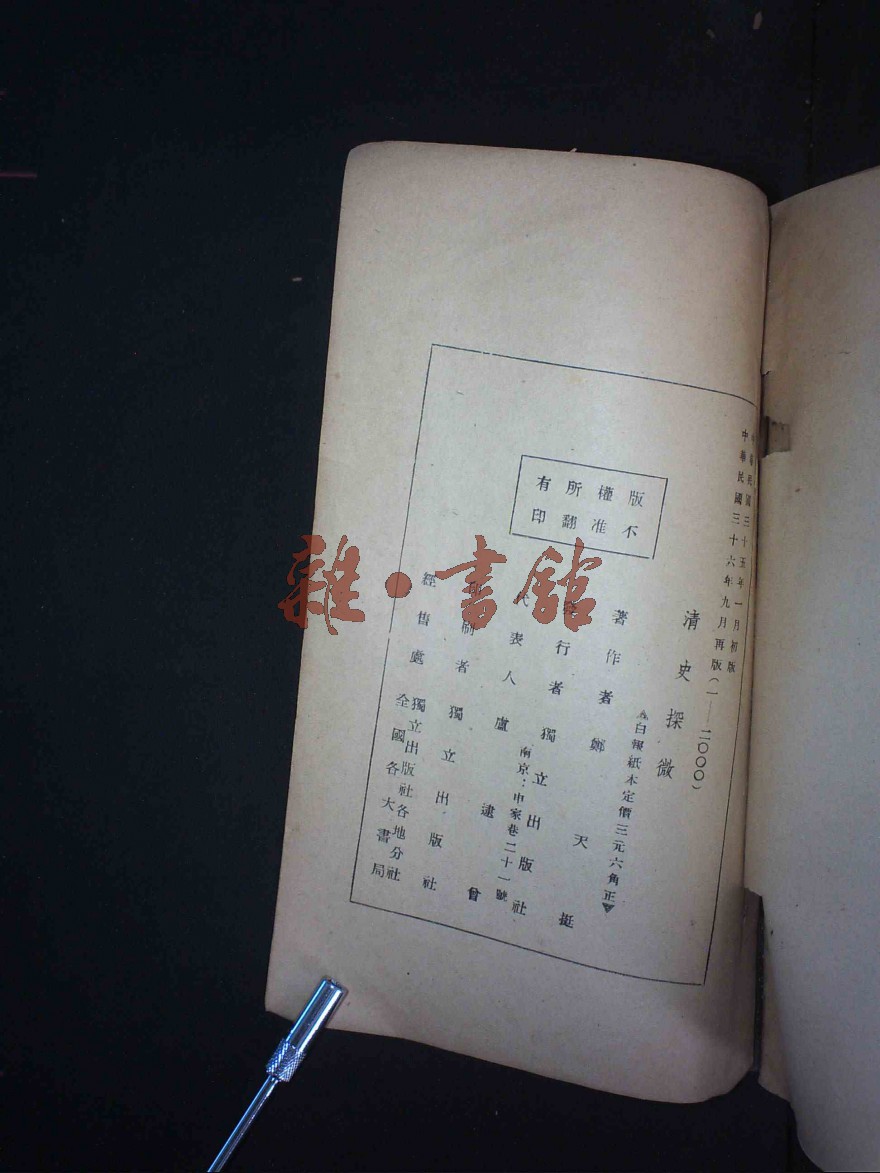 中華民國三十五年一月初版
中華民國三十六年九月再版(一——二〇〇〇)
清史探微
白報紙本定價三元六角正
版權所有
不准翻印
著作者 鄭天挺
發行者 獨立出版社
南京:申家巷二十一號
代表人 盧逮曾
印刷者 獨立出版社
經售處 獨立出版社各地分社
全國各大書局
雜·書館